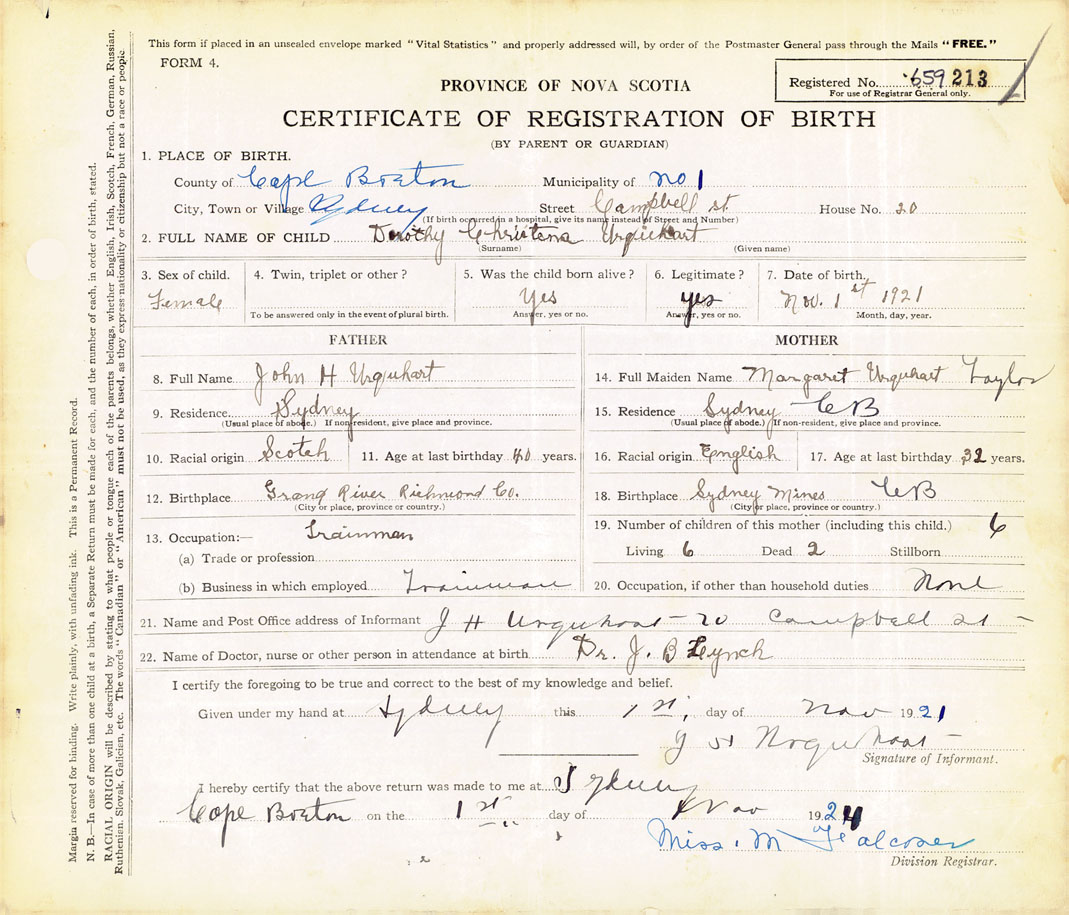 This form if placed in an unsealed envelope marked "Vital Statistics" and properly addressed will, by order of the Postmaster General pass through the Mails "FREE."
FORM 4.
PROVINCE OF NOVA SCOTIA
Registered No. 659213
For use of Registrar General only.
CERTIFICATE OF REGISTRATION OF BIRTH
(BY PARENT OR GUARDIAN)
1. PLACE OF BIRTH.
County of Cape Breton Municipality of No 1
City, Town or Village Sydney Street Campbell st. House No. 20
(If birth occurred in a hospital, give its name instead of Street and Number)
2. FULL NAME OF CHILD Dorothy Christena Urquhart
(Surname) (Given name)
3. Sex of child. 4. Twin, triplet or other? 5. Was the child born alive? 6. Legitimate? 7. Date of birth.
Female Yes yes Nov. 1st 1921
To be answered only in the event of plural birth. Answer, yes or no. Answer, yes or no. Month, day, year.
FATHER MOTHER
8. Full Name John H Urquhart 14. Full Maiden Name Margaret Urquhart Taylor
9. Residence. Sydney 15. Residence Sydney CB
(Usual place of abode.) If non-resident, give place and province. (Usual place of abode.) If non-resident, give place and province.
10. Racial origin Scotch 11. Age at last birthday 40 years. 16. Racial origin English 17. Age at last birthday 32 years.
12. Birthplace Grand River Richmond Co. 18. Birthplace Sydney Mines CB
(City or place, province or country.) (City or place, province or country.)
13. Occupation:— Trainman 19. Number of children of this mother (including this child.) 6
(a) Trade or profession Living 6 Dead 2 Stillborn
(b) Business in which employed Trainman 20. Occupation, if other than household duties None
21. Name and Post Office address of Informant J H Urquhart - 20 Campbell st -
22. Name of Doctor, nurse or other person in attendance at birth. Dr. J. B Lynch
I certify the foregoing to be true and correct to the best of my knowledge and belief.
Given under my hand at Sydney this 1st, day of Nov 1921
J H Urquhart -
Signature of Informant.
I hereby certify that the above return was made to me at Sydney
Cape Breton on the 1st day of Nov 192
Miss. M Falconer
Division Registrar.
Margin reserved for binding. Write plainly, with unfading ink. This is a Permanent Record.
N. B.—In case of more than one child at a birth, a Separate Return must be made for each, and the number of each, in order of birth, stated.
RACIAL ORIGIN will be described by stating to what people or tongue each of the parents belongs, whether English, Irish, Scotch, French, German, Russian,
Ruthenian, Slovak, Galician, etc. The words "Canadian" or "American" must not be used, as they express nationality or citizenship but not a race or people.